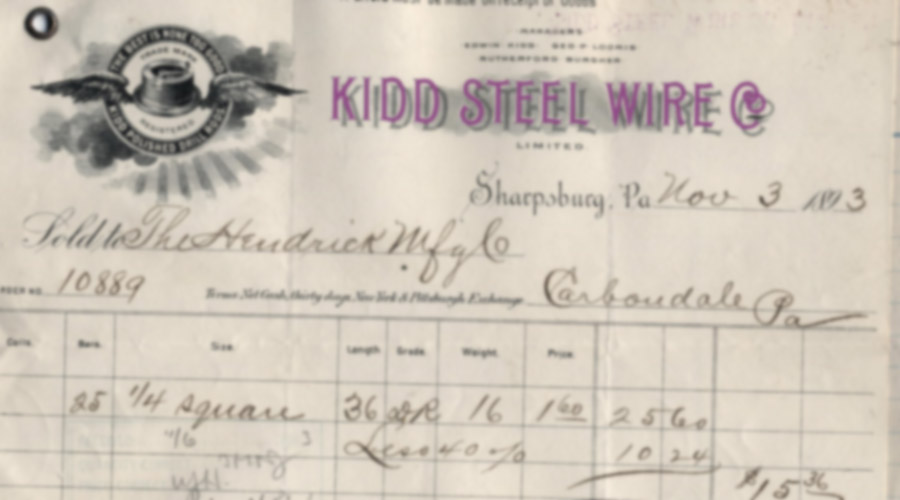 THE BEST IS NONE TOO GOOD
TRADE MARK
REGISTERED
KIDD POLISHED DRILL RODS
MANAGERS
EDWIN KIDD
RUTHERFORD BURGHER
KIDD STEEL WIRE Co
LIMITED
Sharpsburg, Pa Nov 3 1893
Sold to The Hendrick Mfg Co
ORDER NO. 10889 Terms Net Cash, thirty days, New York & Pittsburgh Exchange. Carbondale Pa
Coils. Bars. Size. Length Grade. Weight. Price.
25 1/4 square 36 DR 16 1 60 25 60
Less 40 % 10 24
$15 36